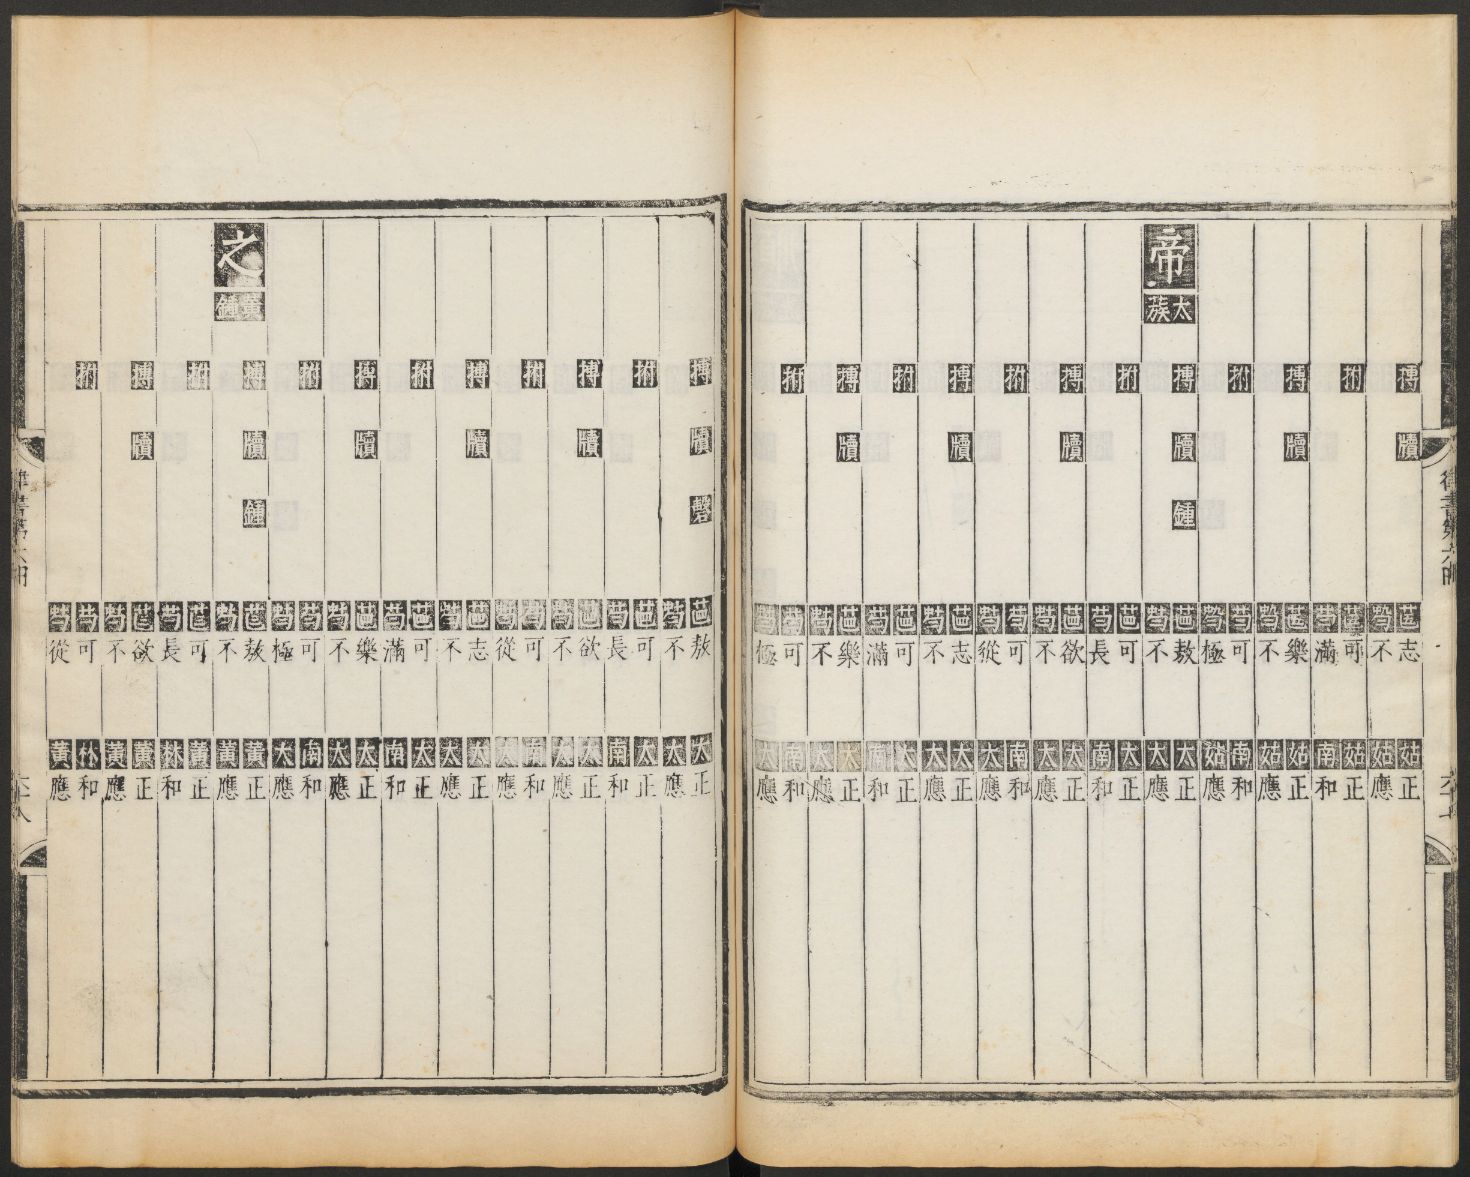 搏牘志姑正
不姑應
拊可姑正
滿南和
搏牘樂姑正
不姑應
拊可南和
極姑應
帝太簇
搏牘鍾敖太正
不太應
拊可太正
長南和
搏牘欲太正
不太應
拊可南和
從太應
搏牘志太正
不太應
拊可太正
滿南和
搏牘樂太正
不太應
拊可南和
極太應
搏牘磬敖太正
不太應
拊可太正
長南和
搏牘欲太正
不太應
拊可南和
從太應
搏牘志太正
不太應
拊可太正
滿南和
搏牘樂太正
不太應
拊可南和
極太應
之黃鐘
搏牘鍾敖黃正
不黃應
拊可黃正
長林和
搏牘欲黃正
不黃應
拊可林和
從黃應